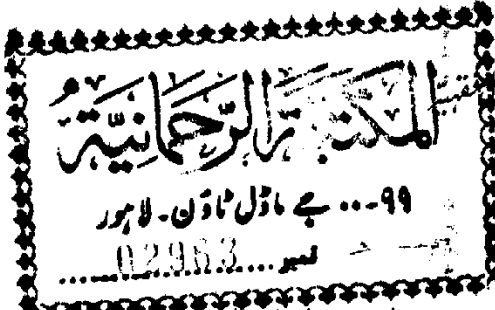 المكتبة الرحمانية
۹۹-۰۰ جے ماڈل ٹاؤن۔ لاہور
نمبر ........02963........